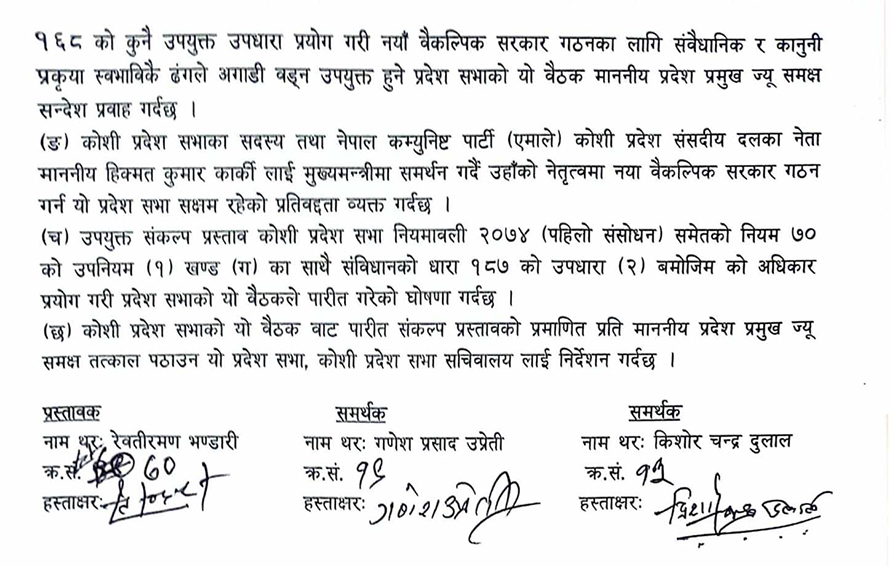 १६८ को कुनै उपयुक्त उपधारा प्रयोग गरी नयाँ वैकल्पिक सरकार गठनका लागि संवैधानिक र कानुनी
प्रकृया स्वभाविकै ढंगले अगाडी वड्न उपयुक्त हुने प्रदेश सभाको यो वैठक माननीय प्रदेश प्रमुख ज्यू समक्ष
सन्देश प्रवाह गर्दछ ।
(ङ) कोशी प्रदेश सभाका सदस्य तथा नेपाल कम्युनिष्ट पार्टी (एमाले) कोशी प्रदेश संसदीय दलका नेता
माननीय हिक्मत कुमार कार्की लाई मुख्यमन्त्रीमा समर्थन गर्दै उहाँको नेतृत्वमा नया वैकल्पिक सरकार गठन
गर्न यो प्रदेश सभा सक्षम रहेको प्रतिवद्दता व्यक्त गर्दछ ।
(च) उपयुक्त संकल्प प्रस्ताव कोशी प्रदेश सभा नियमावली २०७४ (पहिलो संसोधन) समेतको नियम ७०
को उपनियम (१) खण्ड (ग) का साथै संविधानको धारा १८७ को उपधारा (२) बमोजिम को अधिकार
प्रयोग गरी प्रदेश सभाको यो वैठकले पारीत गरेको घोषणा गर्दछ ।
(छ) कोशी प्रदेश सभाको यो वैठक वाट पारीत संकल्प प्रस्तावको प्रमाणित प्रति माननीय प्रदेश प्रमुख ज्यू
समक्ष तत्काल पठाउन यो प्रदेश सभा, कोशी प्रदेश सभा सचिवालय लाई निर्देशन गर्दछ ।
प्रस्तावक समर्थक समर्थक
नाम थरः रेवतीरमण भण्डारी नाम थरः गणेश प्रसाद उप्रेती नाम थरः किशोर चन्द्र दुलाल
क्र.सं. ६० क्र.सं. क्र.सं.
हस्ताक्षरः हस्ताक्षरः गणेश उप्रेती हस्ताक्षरः